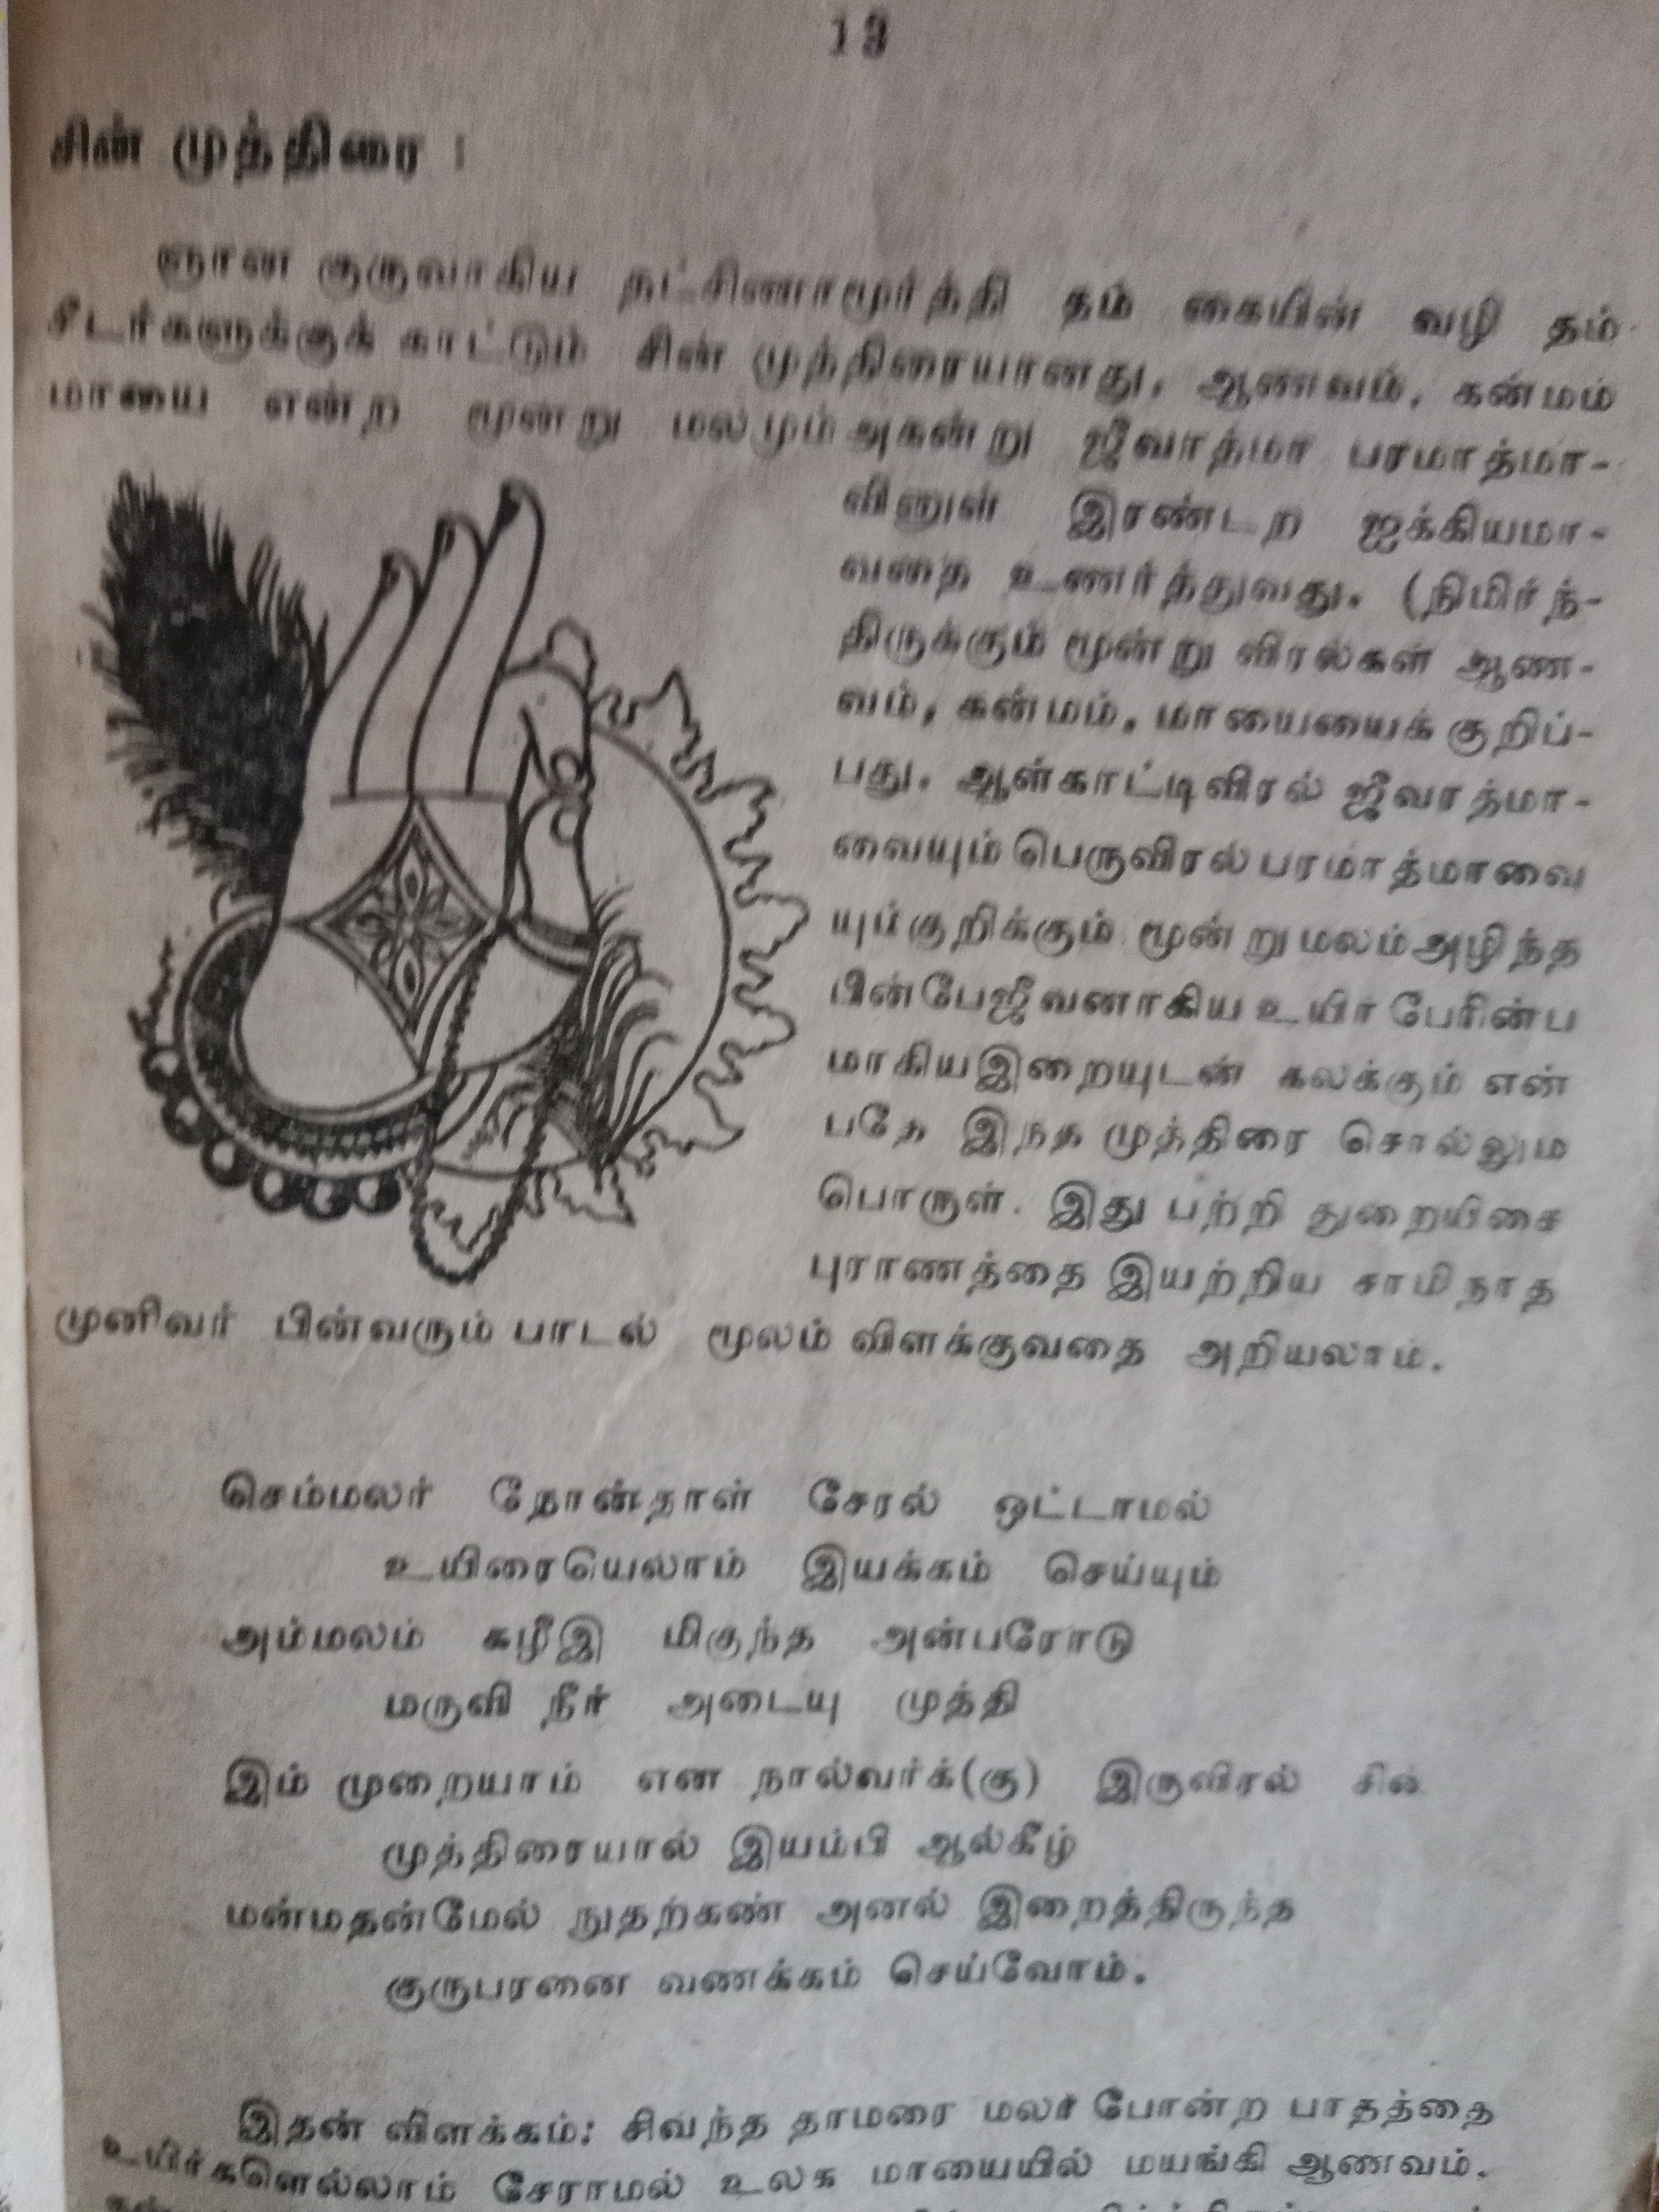 13
சின் முத்திரை :
ஞான குருவாகிய தட்சிணாமூர்த்தி தம் கையின் வழி தம்
சீடர்களுக்குக் காட்டும் சின் முத்திரையானது, ஆணவம், கன்மம்
மாயை என்ற மூன்று மலமும் அகன்று ஜீவாத்மா பரமாத்மா-
வினுள் இரண்டற ஐக்கியமா-
வதை உணர்த்துவது. (நிமிர்ந்-
திருக்கும் மூன்று விரல்கள் ஆண-
வம், கன்மம், மாயையைக் குறிப்-
பது. ஆள்காட்டிவிரல் ஜீவாத்மா-
வையும் பெருவிரல் பரமாத்மாவை
யும்குறிக்கும் மூன்று மலம் அழிந்த
பின்பேஜீவனாகிய உயிர் பேரின்ப
மாகிய இறையுடன் கலக்கும் என்
பதே இந்த முத்திரை சொல்லும்
பொருள். இது பற்றி துறையிசை
புராணத்தை இயற்றிய சாமிநாத
முனிவர் பின்வரும் பாடல் மூலம் விளக்குவதை அறியலாம்.
செம்மலர் நோன்தாள் சேரல் ஒட்டாமல்
உயிரையெலாம் இயக்கம் செய்யும்
அம்மலம் கழீஇ மிகுந்த அன்பரோடு
மருவி நீர் அடையு முத்தி
இம் முறையாம் என நால்வர்க்(கு) இருவிரல் சின்
முத்திரையால் இயம்பி ஆல்கீழ்
மன்மதன்மேல் நுதற்கண் அனல் இறைத்திருந்த
குருபரனை வணக்கம் செய்வோம்.
இதன் விளக்கம்: சிவந்த தாமரை மலர் போன்ற பாதத்தை
உயிர்களெல்லாம் சேராமல் உலக மாயையில் மயங்கி ஆணவம்.